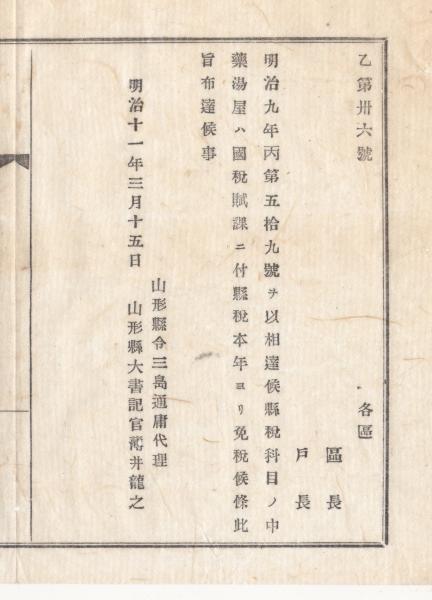 乙第卅六號
各區
區長
戶長
明治九年丙第五拾九號ヲ以相達候縣稅科目ノ中
藥湯屋ハ國稅賦課ニ付縣稅本年ヨリ免稅候條此
旨布達候事
山形縣令三島通庸代理
明治十一年三月十五日 山形縣大書記官薄井龍之